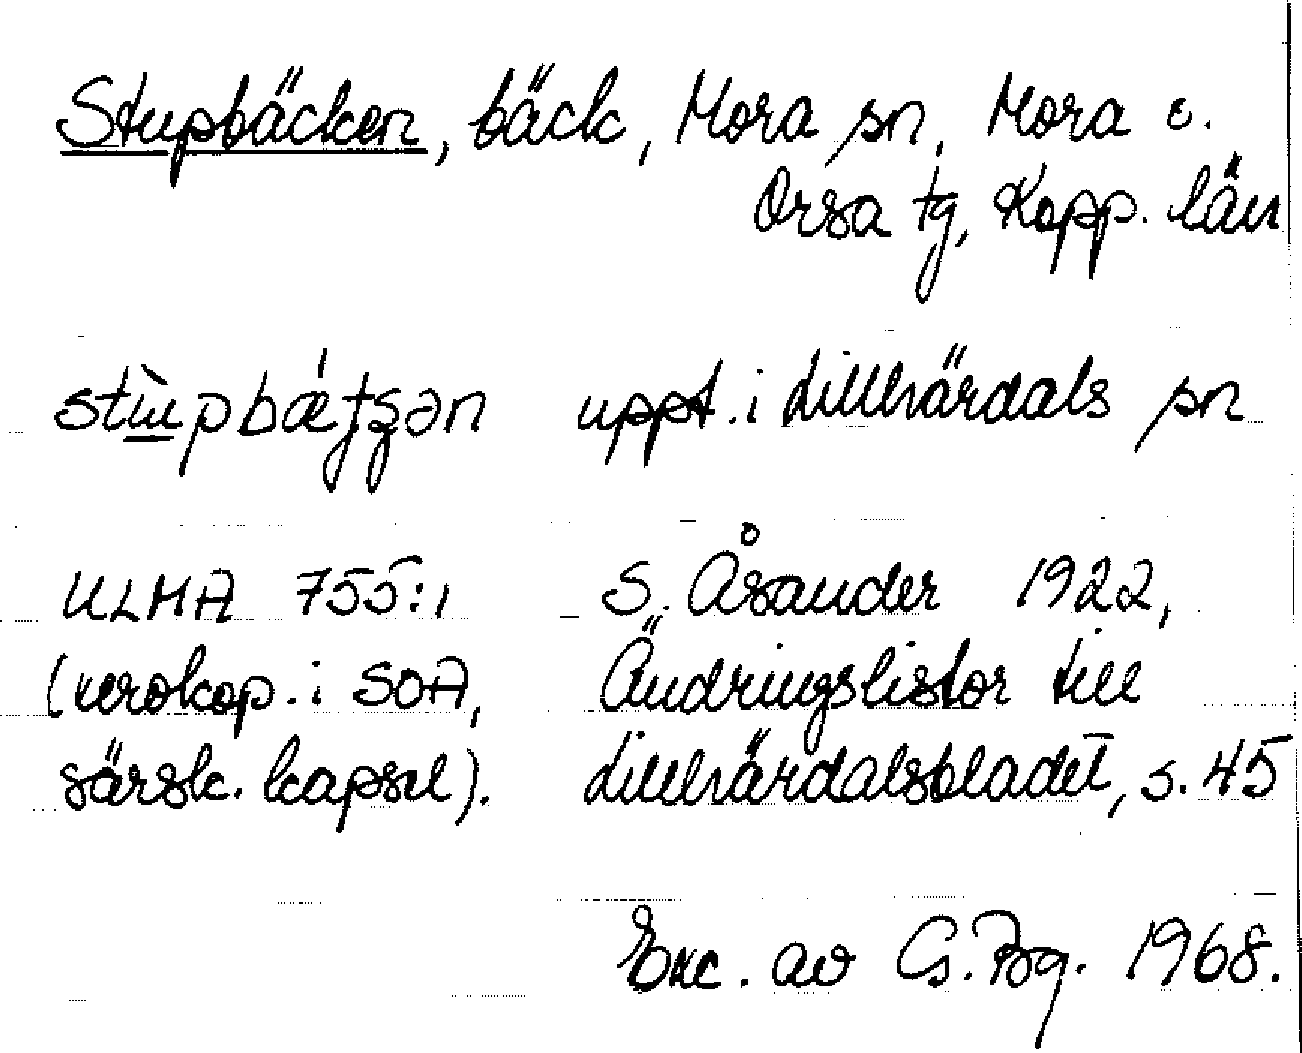 Stupbäcken, bäck, Mora sn, Mora o.
Orsa tg, Kopp. län
uppt. i Lillhärdals sn
ULMA 755:1 S. Åsander 1922,
(xerokop. i SOA, Ändringslistor till
särsk. kapsel). Lillhärdalsbladet, s. 45
Exc. av G. Bg. 1968.